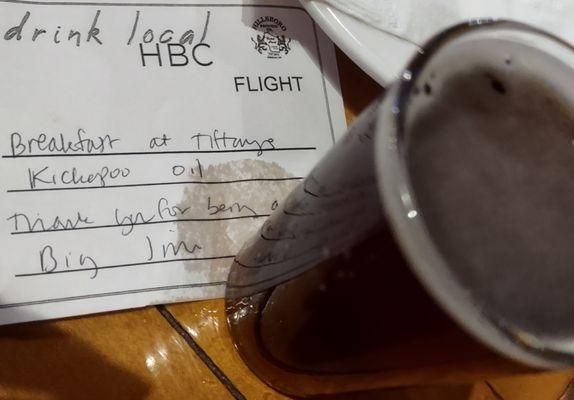 drink local
HBC
HILLSBORO
FLIGHT
Breakfast at Tiffanys
Kickapoo oil
Thank you for being a
Big Jim